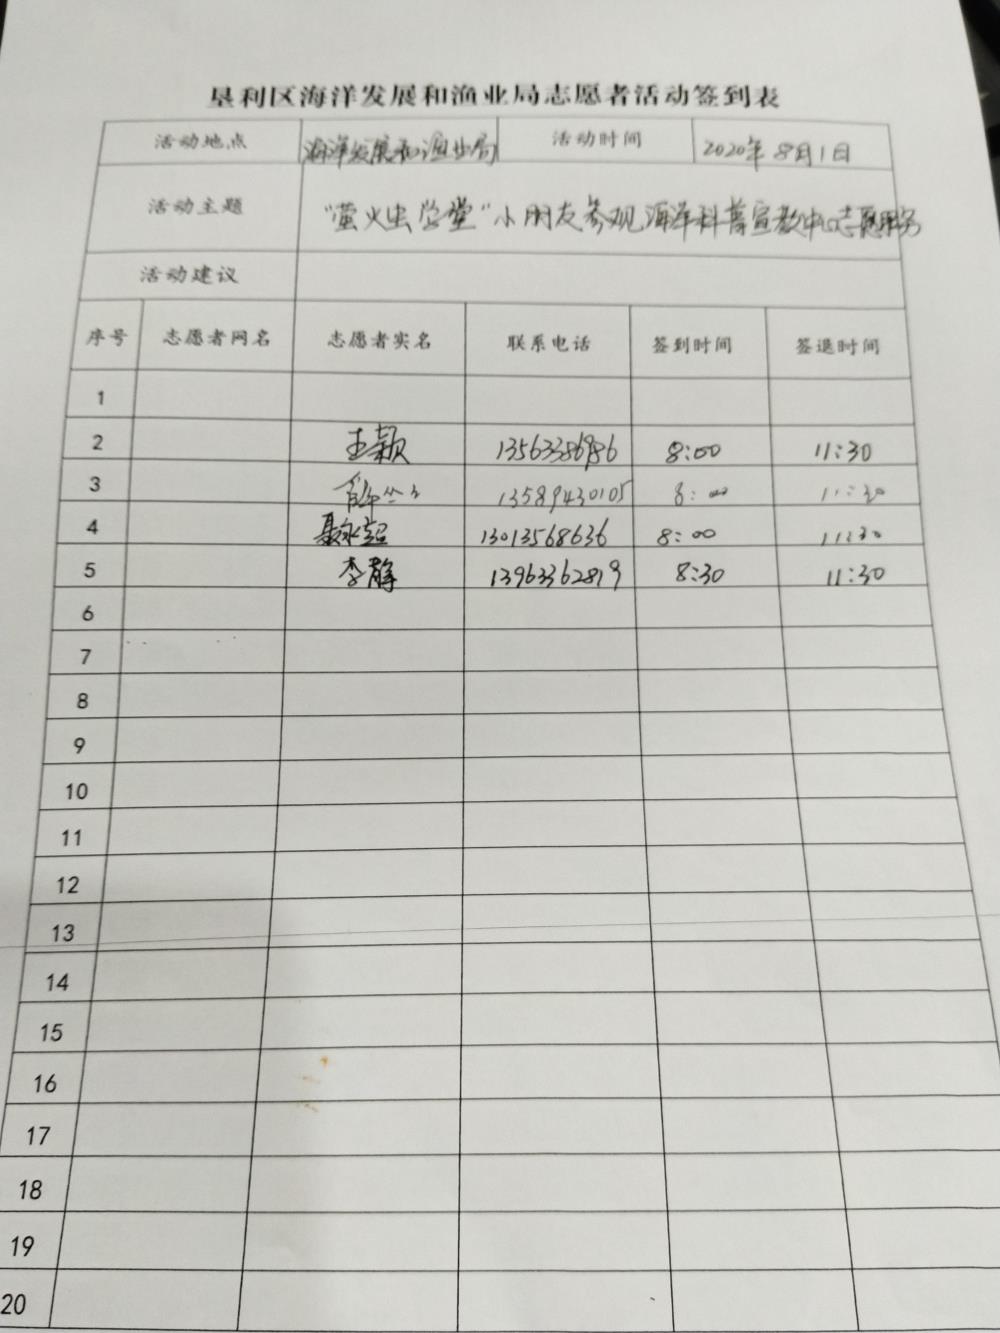 垦利区海洋发展和渔业局志愿者活动签到表
活动地点 海洋发展和渔业局 活动时间 2020年8月1日
活动主题 "萤火虫学堂"小朋友参观海洋科普宣教中心志愿服务
活动建议
序号 志愿者网名 志愿者实名 联系电话 签到时间 签退时间
1
2 王颖 8:00 11:30
3 13589430105 8:00 11:30
4 聂永超 13013568636 8:00 11:30
5 李静 13963362819 8:30 11:30
6
7
8
9
10
11
12
13
14
15
16
17
18
19
20